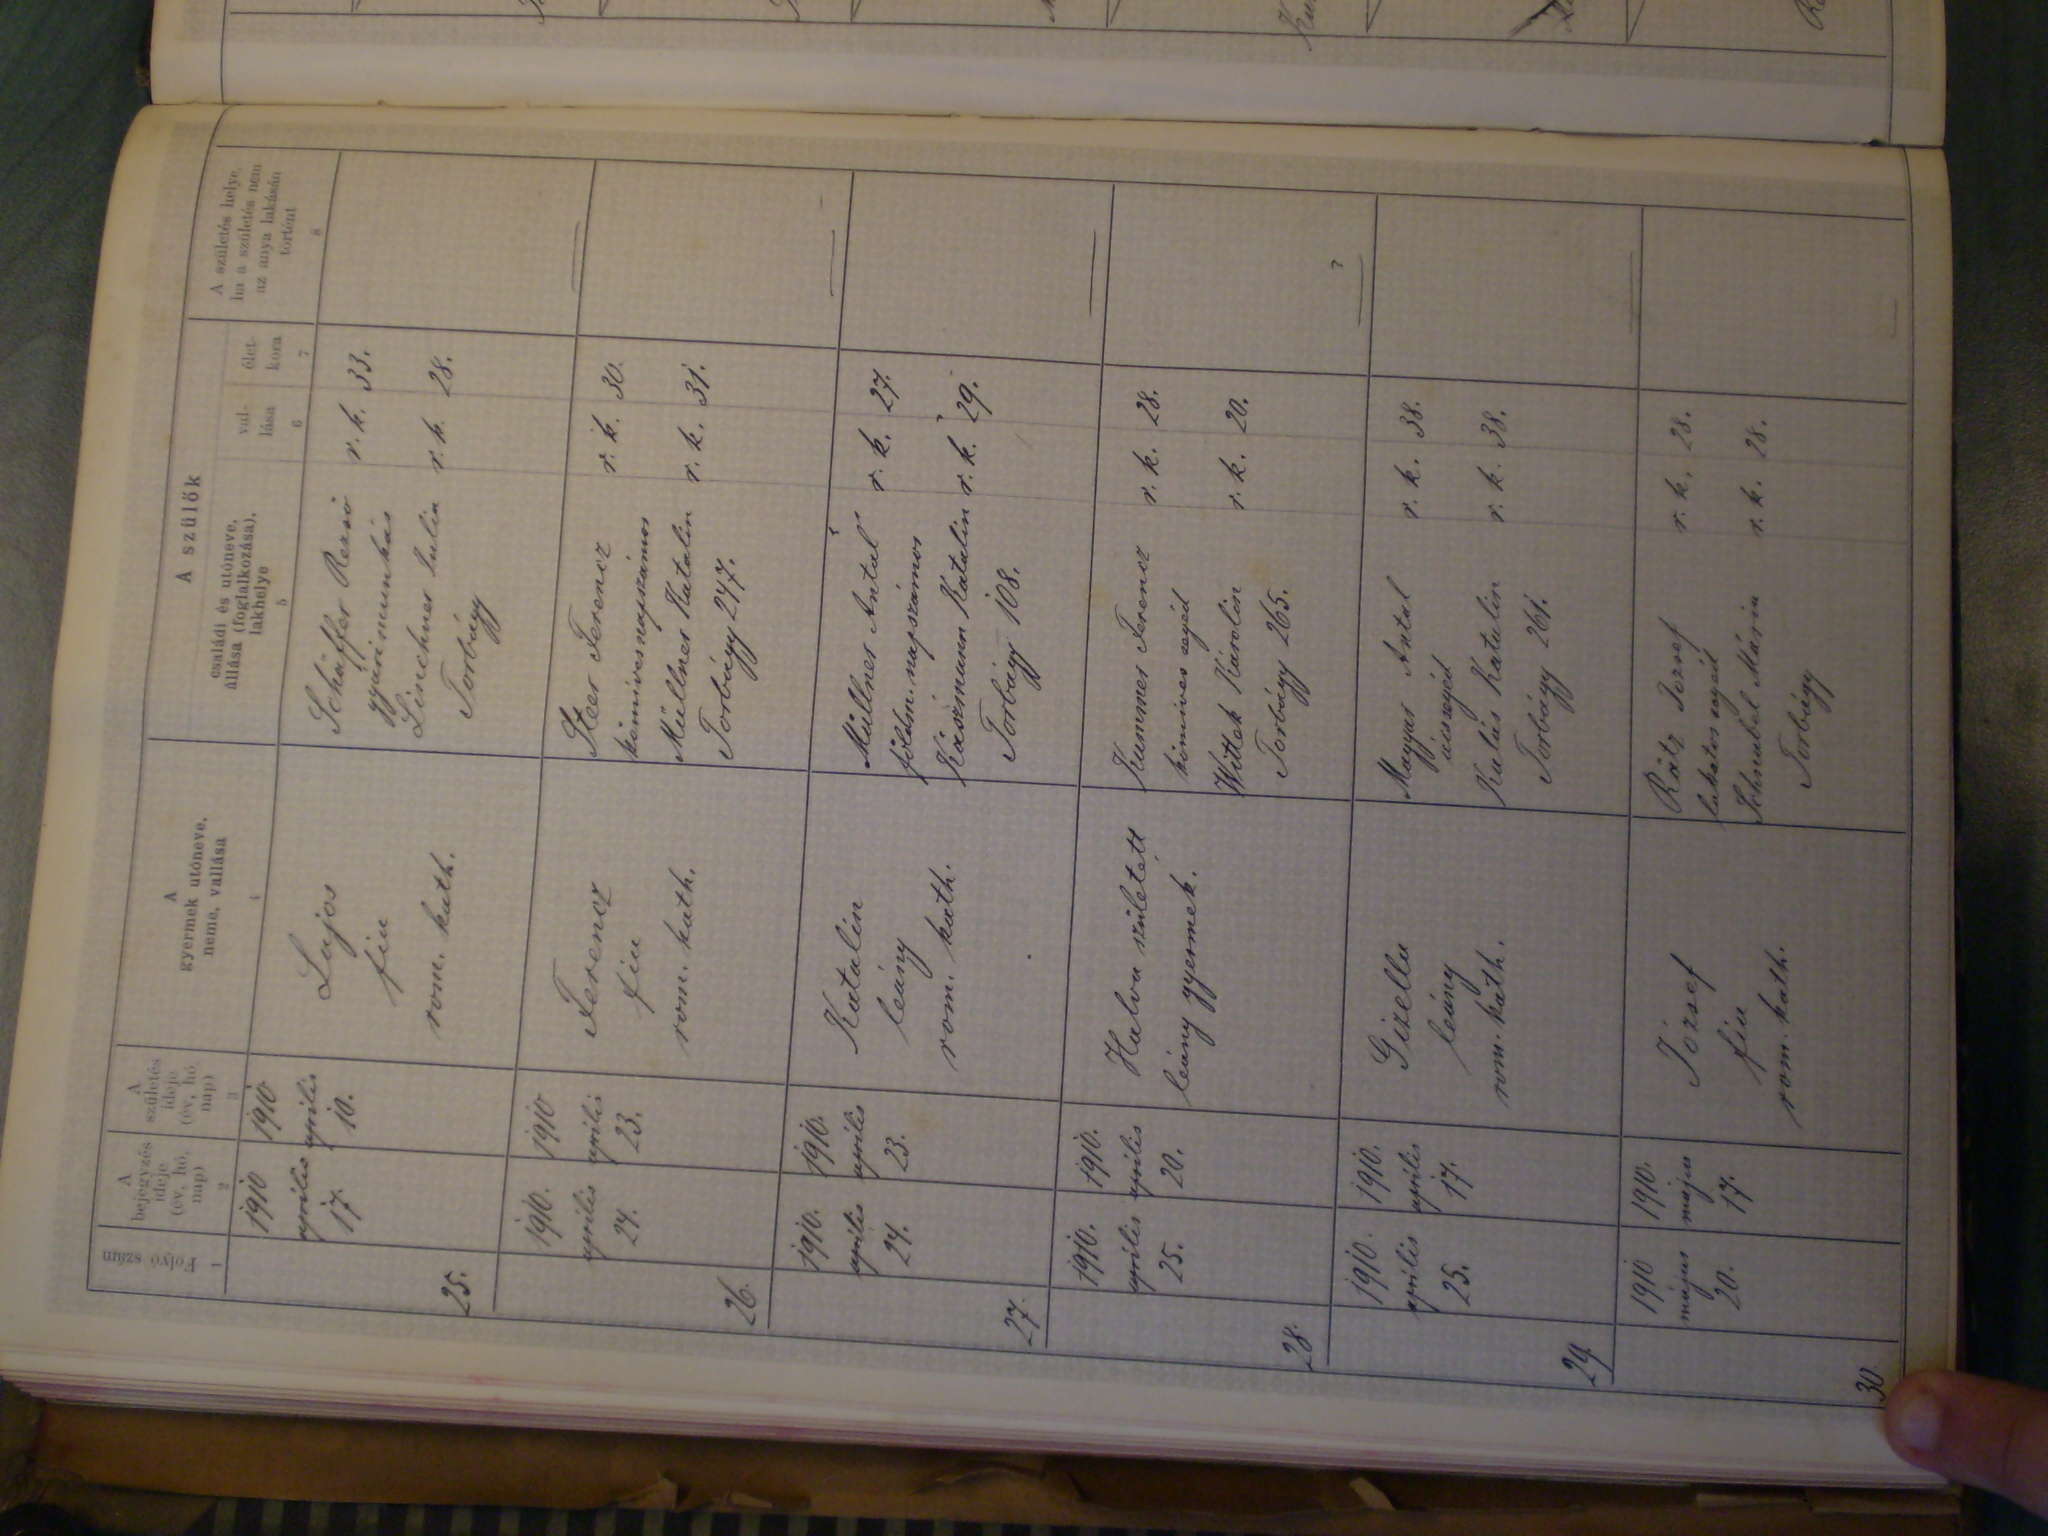 Folyó szám
1
A
bejegyzés
ideje
(év, hó,
nap)
2
A
születés
ideje
(év, hó
nap)
3
A
gyermek utóneve,
neme, vallása
4
A szülők
családi és utóneve,
állása (foglalkozása),
lakhelye
5
val-
lása
6
élet-
kora
7
A születés helye,
ha a születés nem
az anya lakásán
történt
8
25.
1910
április
17.
1910
április
10.
Lajos
fiu
rom. kath.
Schäffer Rezső r. k. 33.
gyárimunkás
Linchner Julia r. k. 28.
Torbágy
26.
1910.
április
24.
1910
április
23.
Ferencz
fiu
rom. kath.
Steer Ferencz r. k. 30.
kőmivesnapszámos
Müllner Katalin r. k. 31.
Torbágy 247.
27.
1910.
április
24.
1910.
április
23.
Katalin
leány
rom. kath.
Müllner Antal r. k. 27.
földm. napszámos
Kaszmann Katalin r. k. 29.
Torbágy 108.
28.
1910.
április
25.
1910.
április
20.
Halva született
leány gyermek.
Kummer Ferencz r. k. 28.
kőmives segéd
Wittek Károlin r. k. 20.
Torbágy 265.
29.
1910.
április
25.
1910.
április
17.
Gizella
leány
rom. kath.
Magyar Antal r. k. 38.
ácssegéd
Kalás Katalin r. k. 38.
Torbágy 261.
30.
1910
május
20.
1910.
május
17.
József
fiu
rom. kath.
Rátz József r. k. 28.
lakatos segéd
Schnabel Mária r. k. 28.
Torbágy